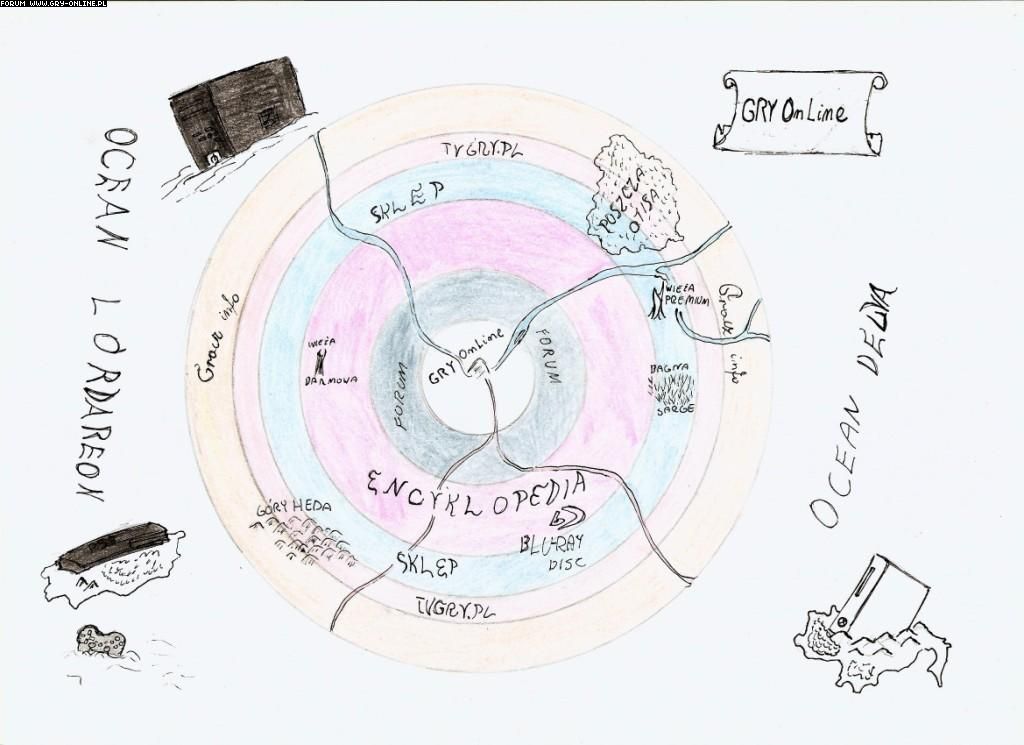 FORUM WWW.GRY-ONLINE.PL
GRY OnLine
OCEAN LORDAREON
TVGRY.PL
SKLEP
PUSZCZA
Gracze info
WIEŻA
PREMIUM
Gracze info
WIEŻA
DARMOWA
GRY OnLine
FORUM
FORUM
BAGNA
SARGE
OCEAN DELVA
ENCYKLOPEDIA
GÓRY HEDA
BLU-RAY
DISC
SKLEP
TVGRY.PL